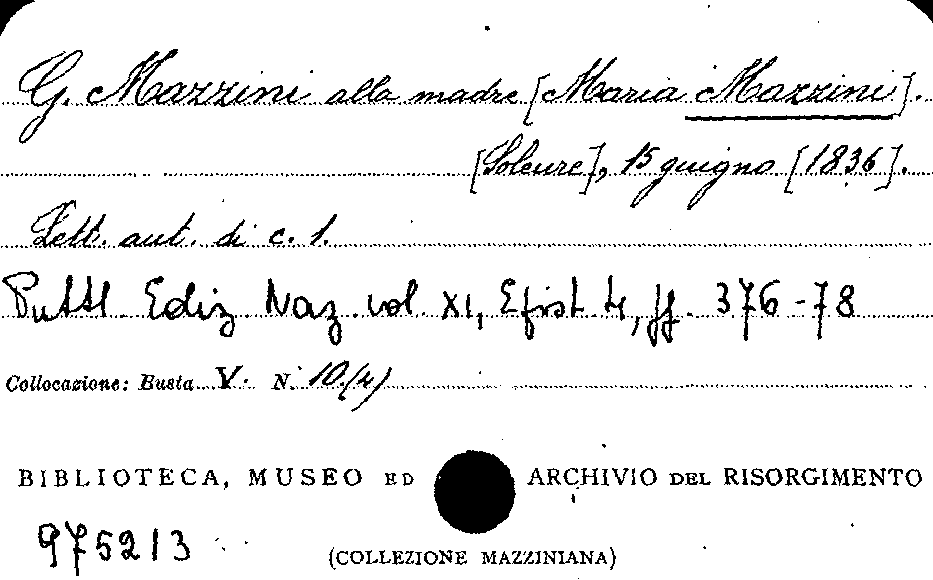 G. Mazzini alla madre [Maria Mazzini].
[Soleure], 15 giugno [1836].
Lett. aut. di c. 1.
Pubbl. Ediz. Naz. vol. XI, Epist. 4, pp. 376-78
Collocazione: Busta V. N. 10.(4)
BIBLIOTECA, MUSEO ED ARCHIVIO DEL RISORGIMENTO
97521 3
(COLLEZIONE MAZZINIANA)